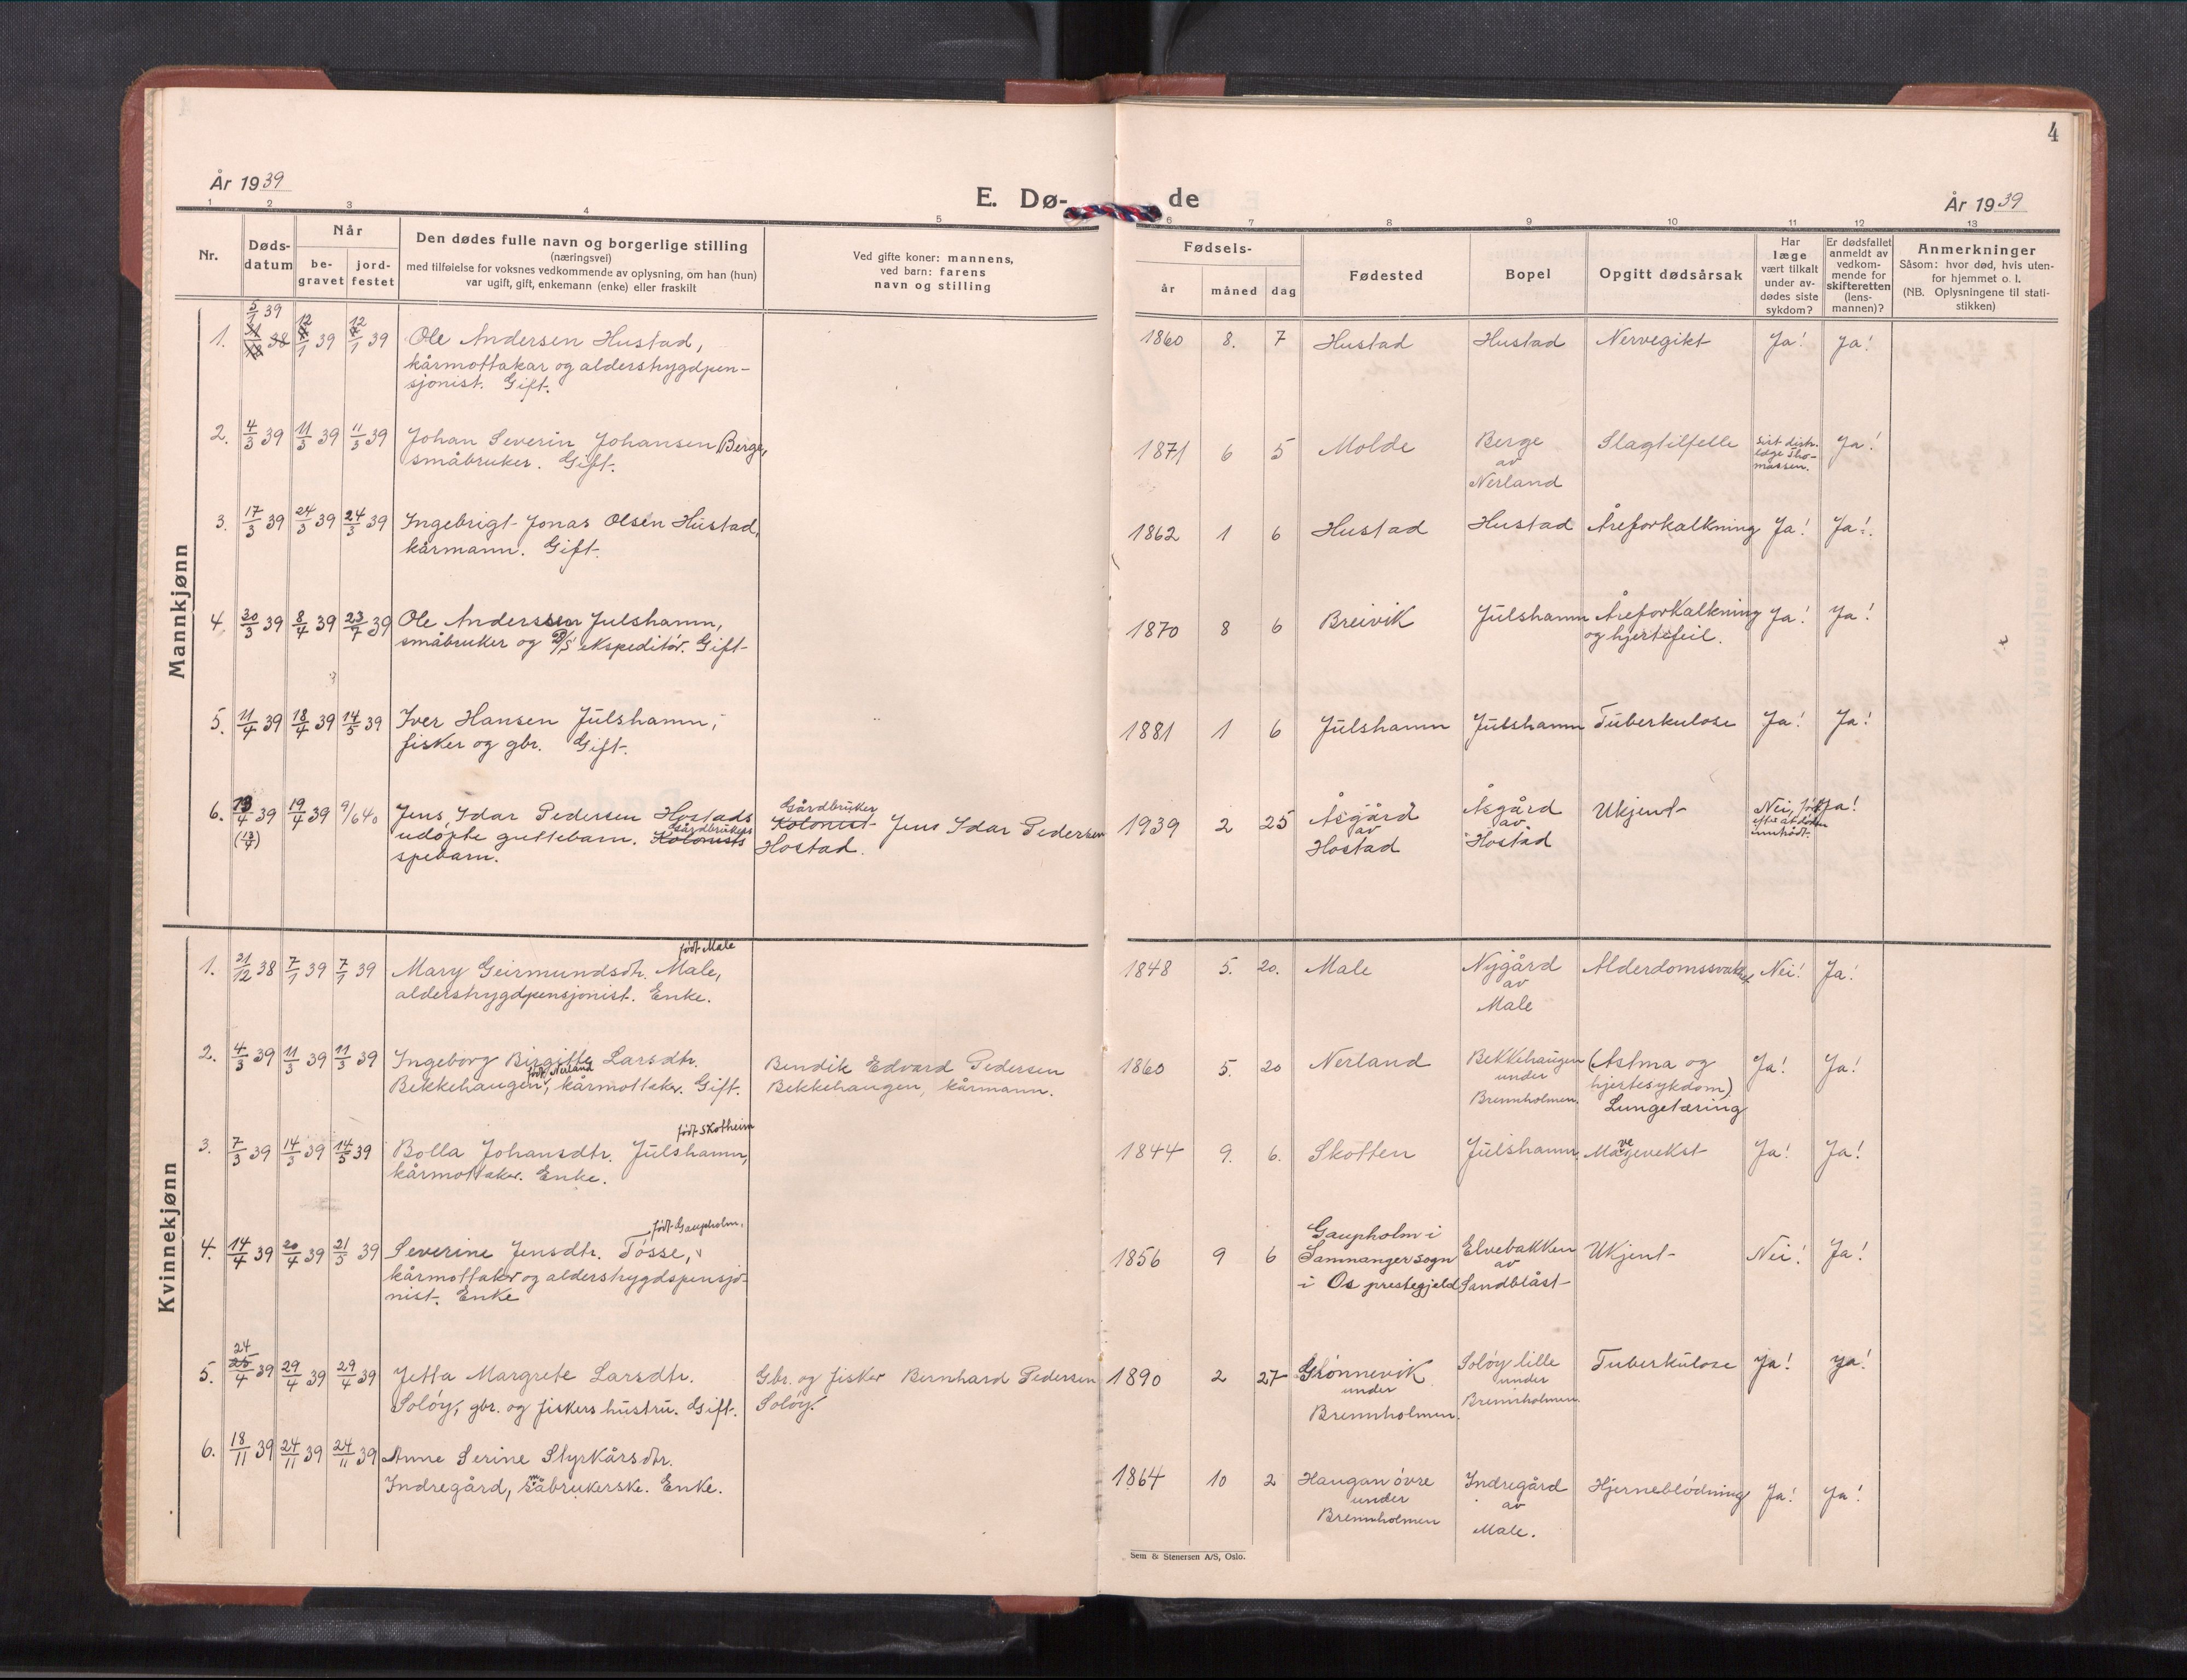 4
År 1939
E. Dø-
de
År 1939
1 2 3 4 5 6 7 8 9 10 11 12 13
Nr.
Døds-
datum
Når
be-
gravet
jord-
festet
Den dødes fulle navn og borgerlige stilling
(næringsvei)
med tilføielse for voksnes vedkommende av oplysning, om han (hun)
var ugift, gift, enkemann (enke) eller fraskilt
Ved gifte koner: mannens,
ved barn: farens
navn og stilling
Fødsels-
år
måned
dag
Fødested
Bopel
Opgitt dødsårsak
Har
læge
vært tilkalt
under av-
dødes siste
sykdom?
Er dødsfallet
anmeldt av
vedkom-
mende for
skifteretten
(lens-
mannen)?
Anmerkninger
Såsom: hvor død, hvis uten-
for hjemmet o. l.
(NB. Oplysningene til stati-
stikken)
Mannkjønn
5/1 39
1. 12/1 39 12/1 39 Ole Andersen Hustad, 1860 8. 7 Hustad Hustad Nervegikt Ja! Ja!
kårmottakar og alderstrygdpen-
sjonist. Gift.
2. 4/3 39 11/3 39 11/3 39 Johan Severin Johansen Berge, 1871 6 5 Molde Berge Slagtilfelle Sist distr. Ja!
småbruker. Gift. av læge Tho-
Nerland massen.
3. 17/3 39 24/3 39 24/3 39 Ingebrigt Jonas Olsen Hustad, 1862 1 6 Hustad Hustad Åreforkalkning Ja! Ja!
kårmann. Gift.
4. 30/3 39 8/4 39 23/7 39 Ole Anderssen Julshamn, 1870 8 6 Breivik Julshamn Åreforkalkning Ja! Ja!
småbruker og D/S ekspeditör. Gift og hjertefeil.
5. 11/4 39 18/4 39 14/5 39 Iver Hansen Julshamn, 1881 1 6 Julshamn Julshamn Tuberkulose Ja! Ja!
fisker og gbr. Gift.
6. 13/4 39 19/4 39 9/6 40 Jens Idar Pedersen Hostads Gårdbruker Kolonist Jens Idar Pedersen 1939 2 25 Åsgård Åsgård Ukjent Nei, Ja!
(13/4) udöpte guttebarn. Gårdbrukers Kolonists Hostad. av av
spebarn. Hostad Hostad
Kvinnekjønn
født Male
1. 21/12 38 7/1 39 7/1 39 Mary Geirmundsdtr. Male, 1848 5. 20. Male Nygård Alderdomssvakhet Nei! Ja!
alderstrygdpensjonist. Enke. av
Male
2. 4/3 39 11/3 39 11/3 39 Ingeborg Birgitte Larsdtr. Bendik Edvard Pedersen 1860 5. 20 Nerland Bekkehaugen (Astma og Ja! Ja!
født Nerland
Bekkehaugen, kårmottaker. Gift. Bekkehaugen, kårmann. under hjertesykdom)
Brennholmen. Lungetæring
født Skotheim
3. 7/3 39 14/3 39 14/5 39 Bolla Johansdtr. Julshamn, 1844 9. 6. Skotten Julshamn. Mavegevekst Ja! Ja!
kårmottaker. Enke.
født Gaupholm.
4. 14/4 39 20/4 39 21/5 39 Severine Jensdtr. Tösse, 1856 9 6 Gaupholm i Elvebakken Ukjent Nei! Ja!
kårmottaker og alderstrygdspensjo- Samnanger sogn av
nist. Enke i Os prestegjeld Sandblåst
24
5. 25/4 39 29/4 39 29/4 39 Jetta Margrete Larsdtr. Gbr. og fisker Bernhard Pedersen 1890 2 27 Grönnevik Solöy lille Tuberkulose Ja! Ja!
Solöy, gbr. og fiskers hustru. Gift. Solöy. under under
Brennholmen. Brennholmen.
6. 18/11 39 24/11 39 24/11 39 Anne Serine Styrkårsdtr. 1864 10 2 Haugan övre Indregård Hjerneblödning Ja! Ja!
Indregård, småbrukerske. Enke. under av
Brennholmen Male.
Sem & Stenersen A/S, Oslo.